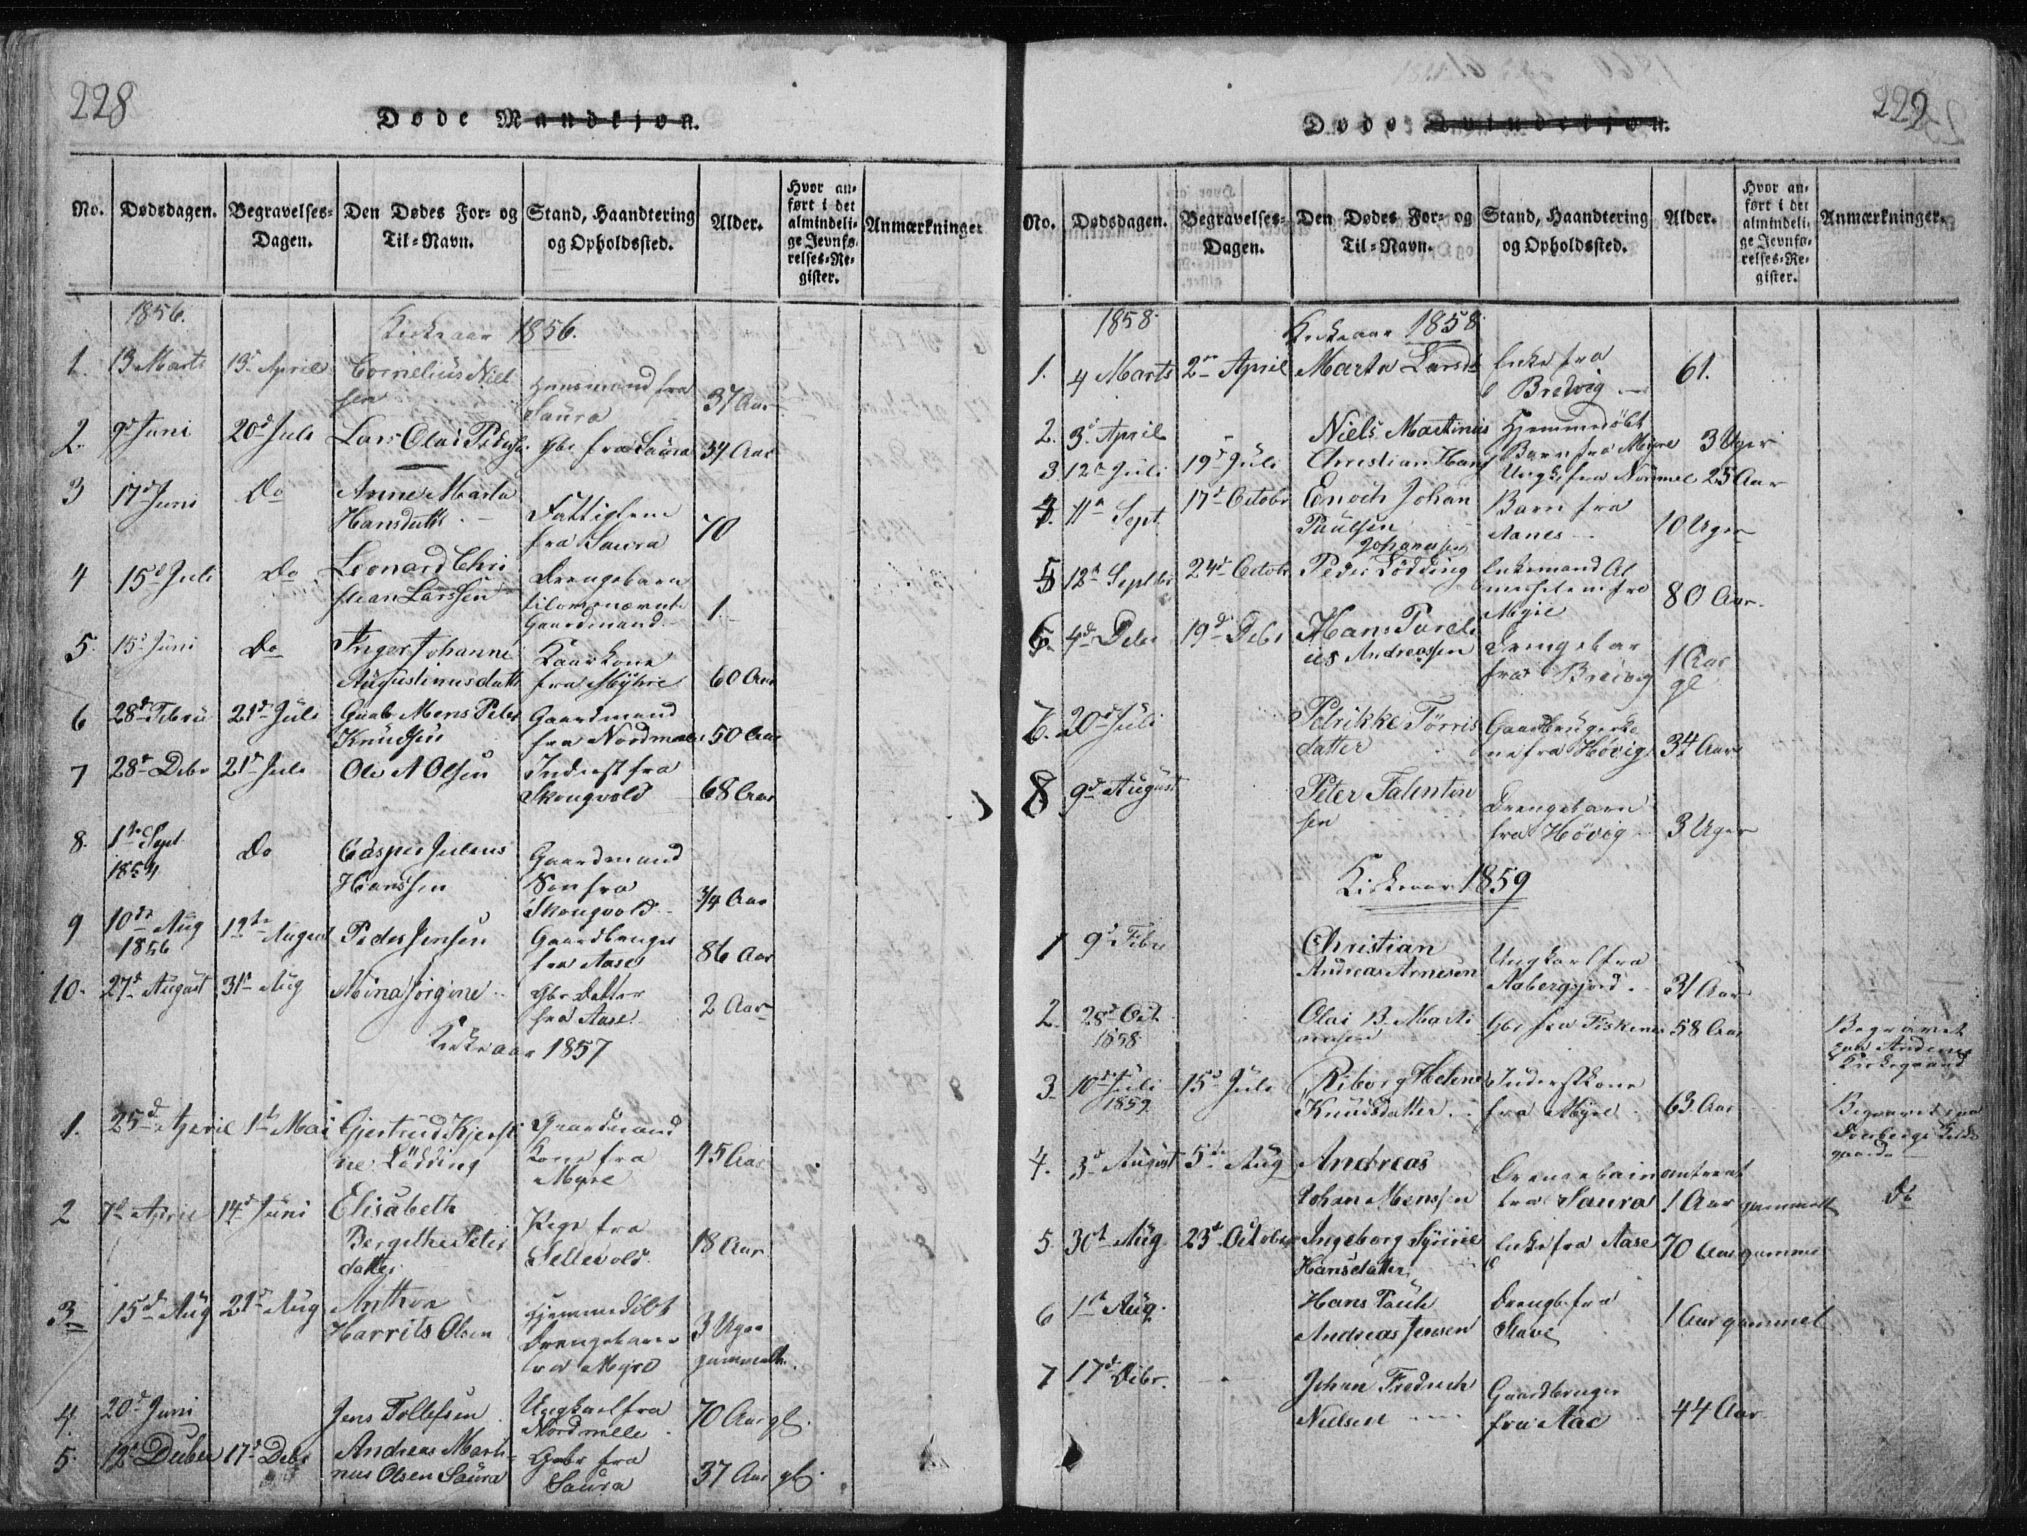 228
Døde Mandkjøn.
No. Dødsdagen. Begravelses-Dagen. Den Dødes For- og Til-Navn. Stand, Haandtering og Opholdssted. Alder. Hvor anført i det almindelige Jevnførelses-Register. Anmærkninger
1856. Kirkeaar 1856.
1. 13 Marts 13d April Cornelius Niel
sen Huusmand fra
Saura 37 Aar
2. 9d Juni 20d Juli Lars Olai Gbr fra Saura 34 Aar
3 17d Juni Do Anne Marta
Hansdattr Fattiglem
fra Saura 70
4 15d Juli Do Leonard Chri
stian Larssen Drengebarn
Gaardmand 1.
5. 15d Juni Do Inger Johanne
Augustinusdattr Kaarkone
fra Myhre 60 Aar
6 28d Febru 21d Juli Mons Peter
Knudsen Gaardmand
fra Nordmele 50 Aar
7 28d Debr 21d Juli Ole A Olsen Inderst fra
Skougvold 68 Aar
8. 1ste Sept
1854 Do Casper Julius
Hanssen Gaardmand
Søn fra
Skougvold 3/4 Aar
9 10de Aug
1856 12te August Peder Jensen Gaardbruger
fra Aase 86 Aar
10. 27d August 31te Aug Mina Jørgine Gbr Datter
fra Aase 2 Aar
Kirkeaar 1857
1. 25d April 1te Mai Gjertrud Kjersti
ne Lødding Gaardmand
Kone fra
Myre 45 Aar
2 7d April 14d Juni Elisabeth
Bergithe Peters
datter Pige fra
Sellevold 18 Aar
3 15d Aug 21d Aug Anthon
Harrits Olsen Hjemmedøbt
Drengebarn
fra Myre 3 Uger
gammelt.
4. 20d Juni Jens Tollefsen Ungkarl fra
Nordmele 70 Aar gl.
5. 12d Decbr 17d Debr Andreas Marti-
nus Olsen Saura Gabr fra
Saura 37 Aar gl.
222
Døde Qvindekjøn.
No. Dødsdagen. Begravelses-Dagen. Den Dødes For- og Til-Navn. Stand, Haandtering og Opholdssted. Alder. Hvor anført i det almindelige Jevnførelses-Register. Anmærkninger.
1858. Kirkeaar 1858.
1. 4 Marts 2den April Marta Larsd Enke fra
Breivig 61.
2. 3d April Niels Martinus Hjemmedøbt
Barn fra Myre 3 Uger
3 12te Juli 19d Juli Christian Hans Ungk fra Normele 25 Aar
4. 11te Sept. 17d Octobr Enoch Johan
Paulsen Barn fra
Aanes 10 Uger
5 12te Septbr 24d Octobr Peder Johannesen Lødding Enkemand Al
musselem fra
Myre 80 Aar.
6. 4d Debr 19d Debr Hans Pareli
us Andreassen Drengebar
fra Breivig 1 Aar
gl
7. 20d Juli Petrikke Tørris
datter Gaardbrugerko
ne fra Høvig 34 Aar
8 9d August Peter Talentin
sen Drengebarn
fra Høvig 3 Uger
Kirkeaar 1859
1 9d Febr Christian
Andreas Arnesen Ungkarl fra
Aabergsjord. 31 Aar
2. 28d Oct.
1858 Olai B. Marti
nusen Gbr fra Fiskenes 58 Aar Begravet
paa Andenes
Kirkegaard
3. 10d Juli
1859 15d Juli Riborg Helene
Knudsdatter Inderstkone
fra Myre 63 Aar Begravet paa
gaard
4. 3d August 5te Aug Andreas
Johan Monssen Drengebarn
fra Saura omtrent
1 Aar gammelt Do
5. 30d Aug 23d October Ingeborg Syrine
Hansdatter Enke fra Aase 70 Aar gammel
6 1te Aug. Hans Paule
Andreas Jensen Drengb. fra
Stave 1 Aar gammel
7 17d Debr. Johan Fredrich
Nielsen Gaardbruger
fra Aae 44 Aar